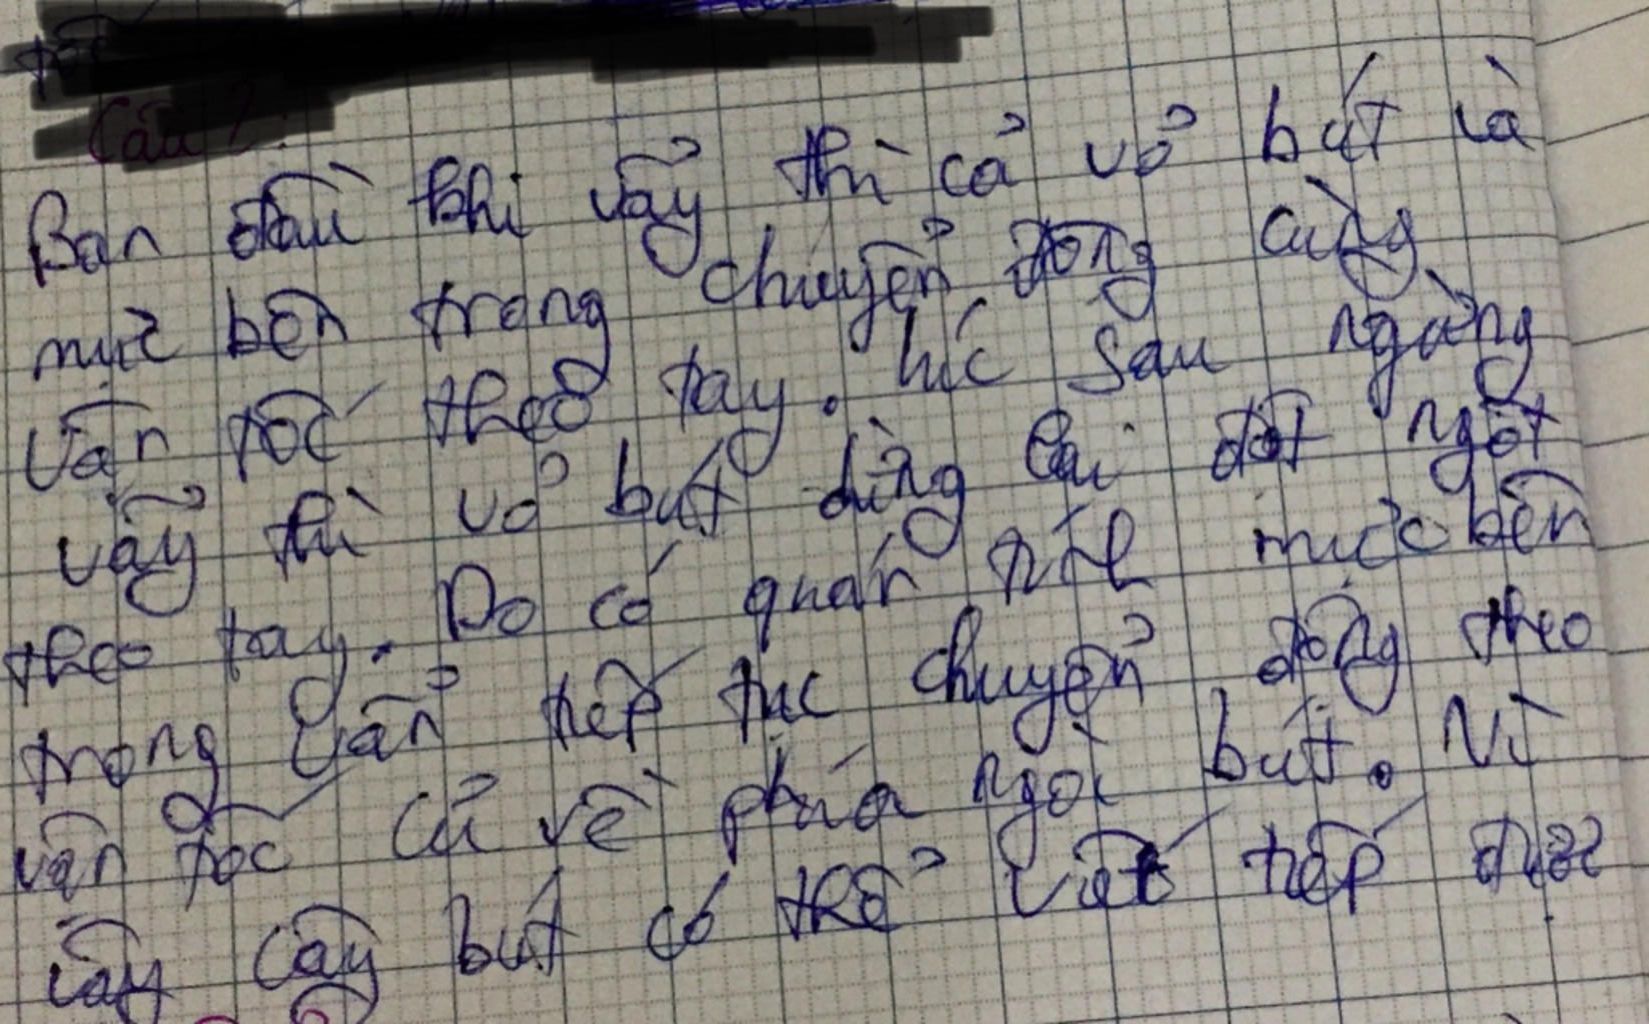 Câu 2:
Ban đầu khi vẩy thì cả vỏ bút và
mực bên trong chuyển động cùng
vận tốc theo tay. lúc sau ngừng
vẩy thì vỏ bút dừng lại đột ngột
theo tay. Do có quán tính mực bên
trong vẫn tiếp tục chuyển động theo
vận tốc cũ về phía ngòi bút. Vì
vậy cây bút có thể viết tiếp được